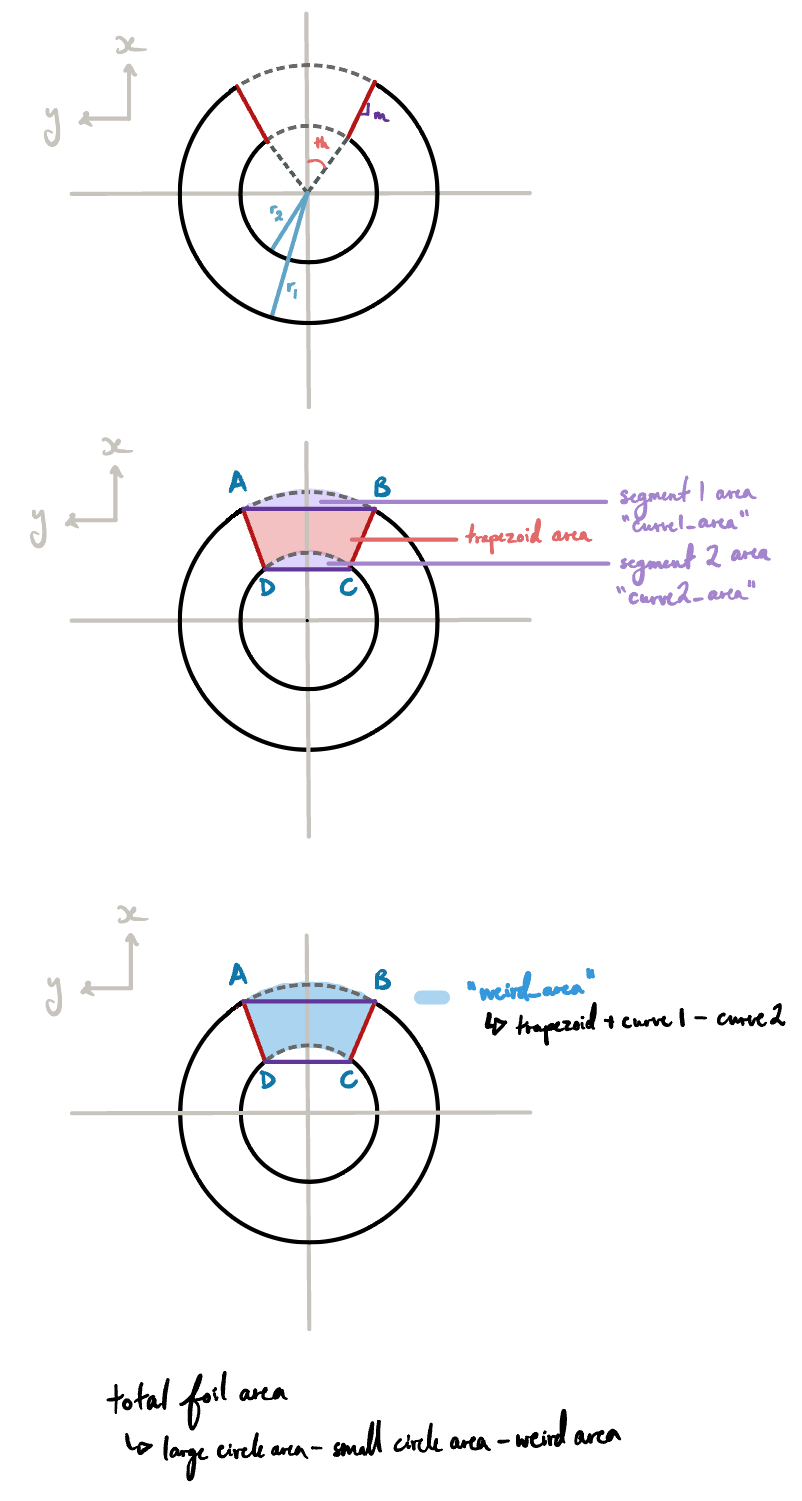 x
y
m
th
r2
r1
x
y
A
B
segment 1 area
"curve1_area"
trapezoid area
segment 2 area
"curve2_area"
D
C
x
y
A
B
"weird_area"
↳ trapezoid + curve1 - curve2
D
C
total foil area
↳ large circle area - small circle area - weird area